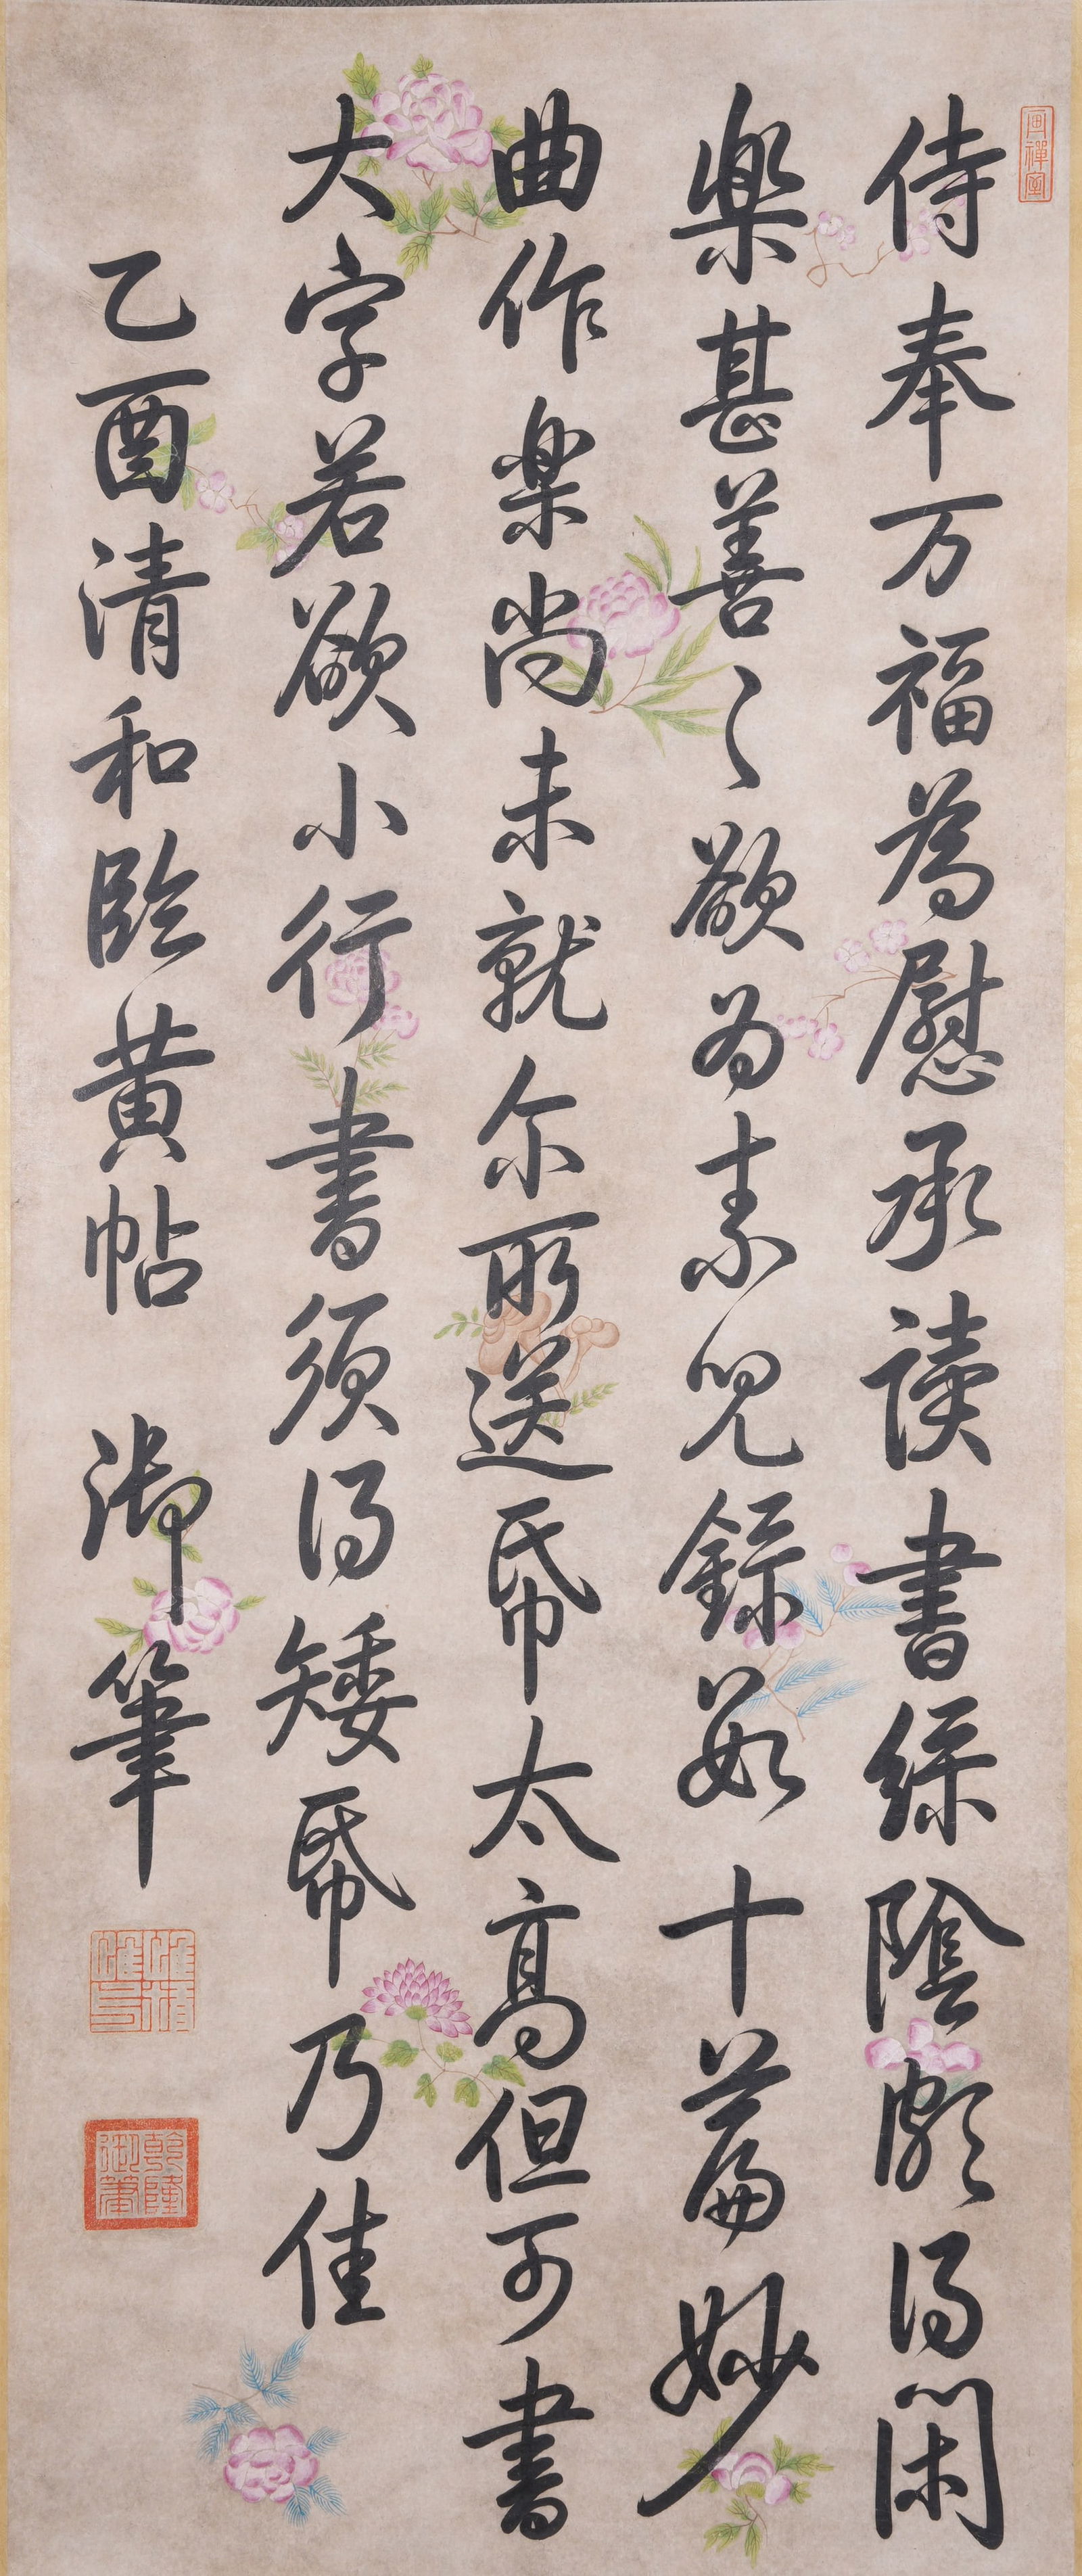 画禅室
侍奉万福為慰承读書綵陰頗得閑
樂甚善〻欲為素兒錄數十篇妙
曲作樂尚未就尔所送帋太高但可書
大字若欲小行書須得矮帋乃佳
乙酉清和臨黄帖 御筆
惟精惟一
乾隆御筆